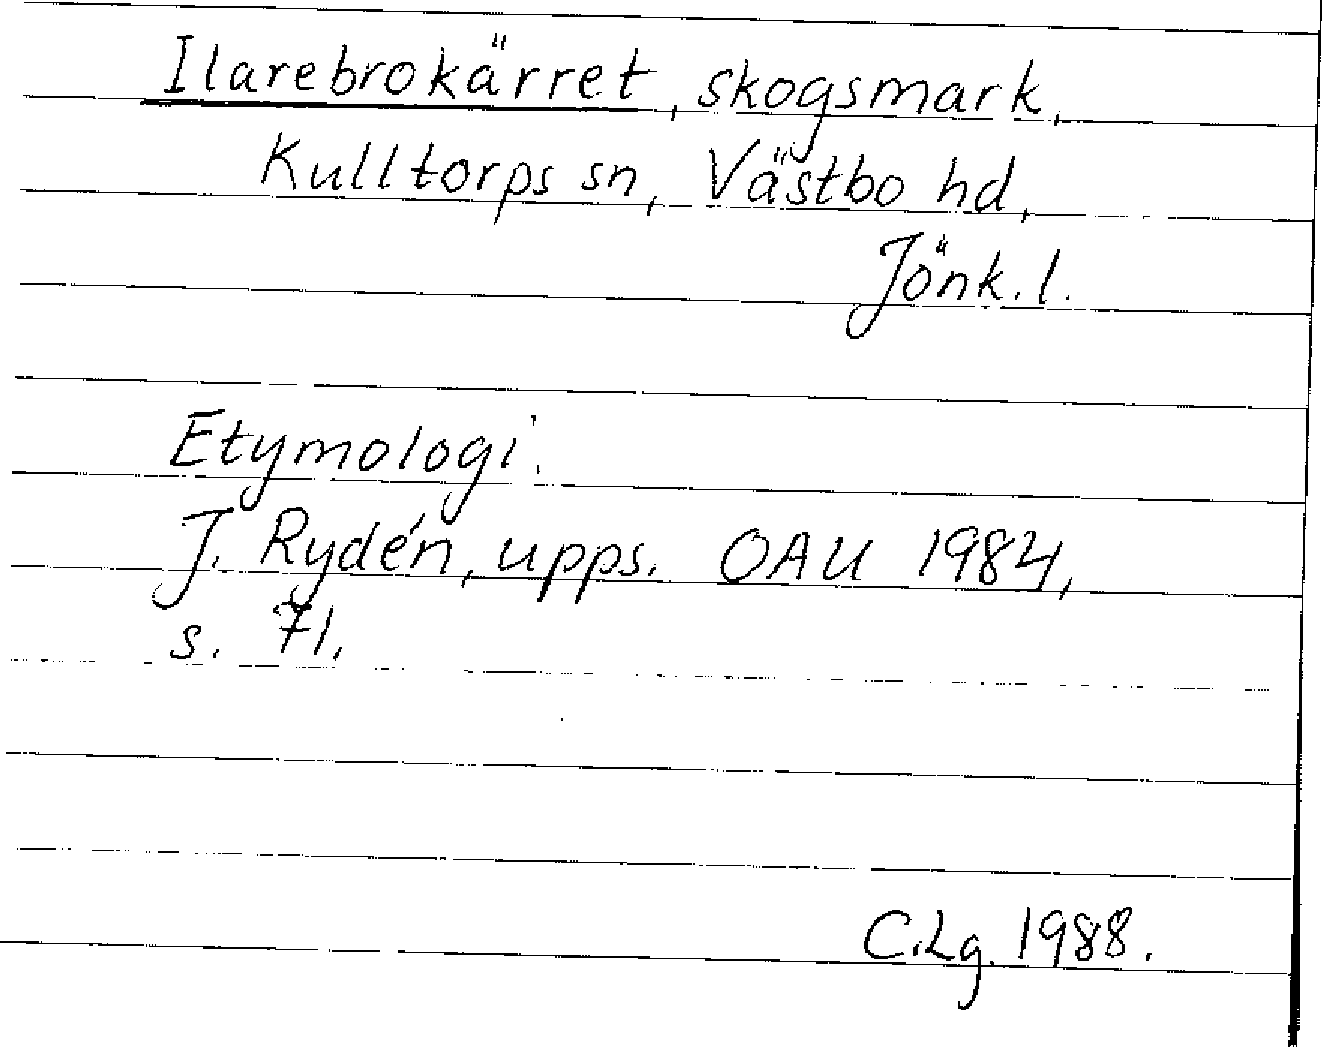 Ilarebrokärret, skogsmark,
Kulltorps sn, Västbo hd,
Jönk. l.
Etymologi.
J. Rydén, upps. OAU 1984,
s. 71.
C.Lg. 1988.